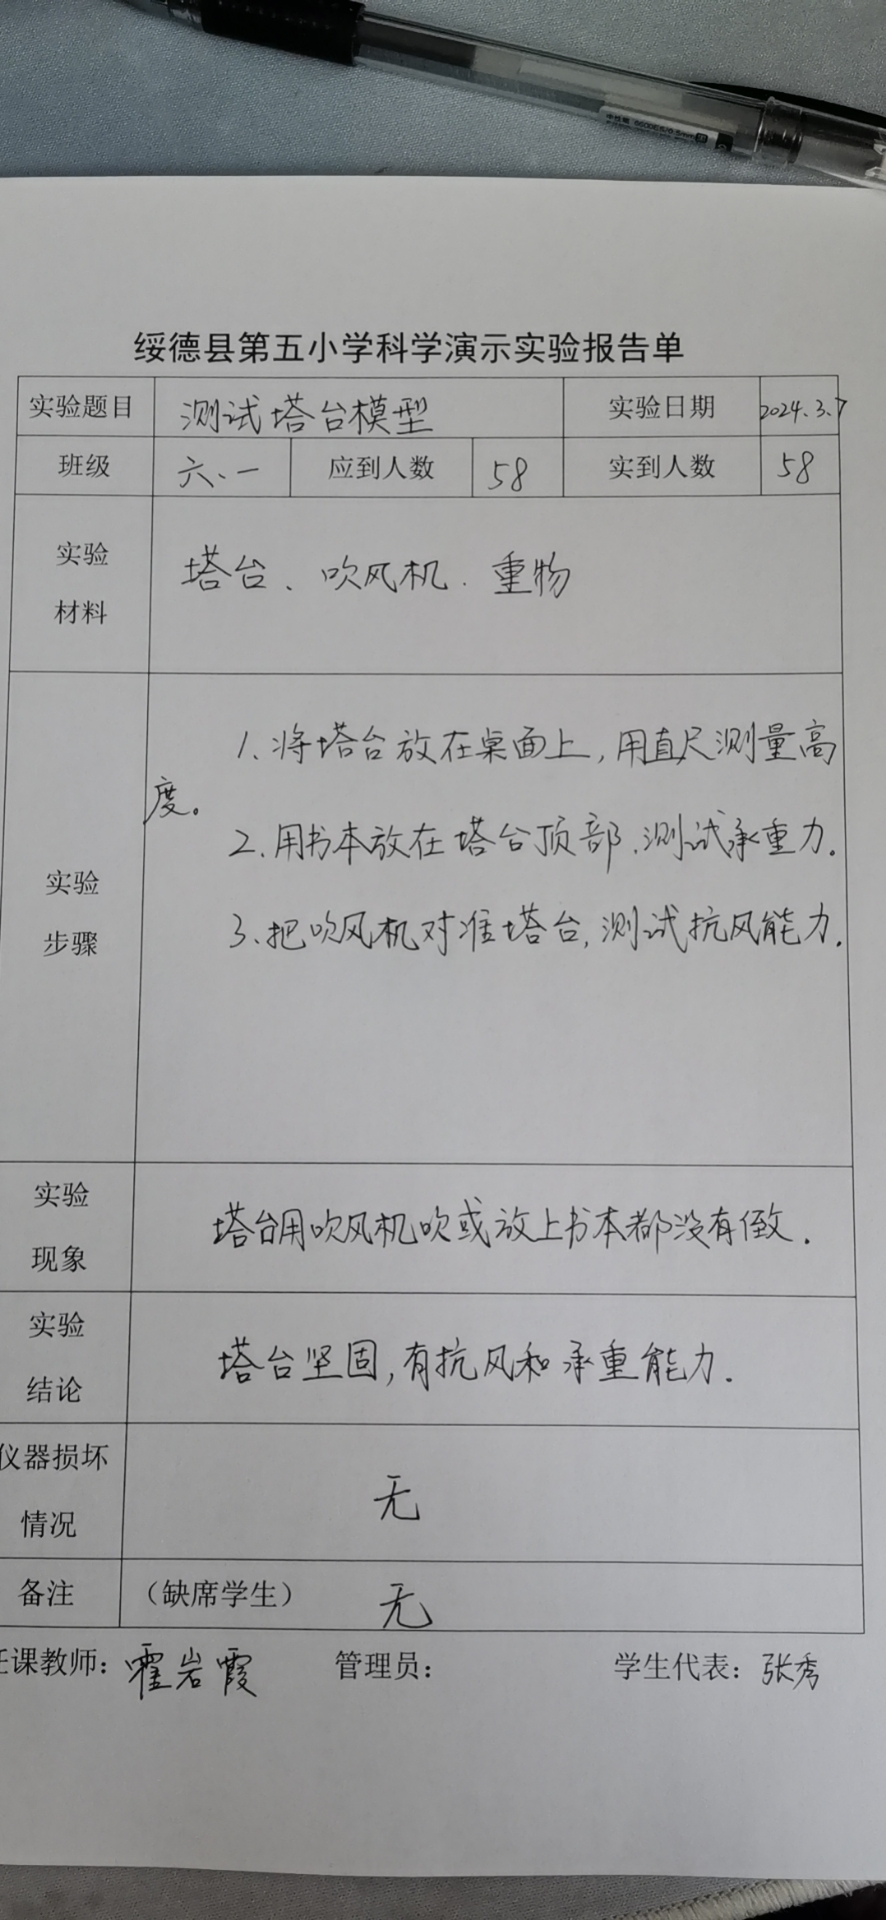 绥德县第五小学科学演示实验报告单
实验题目 测试塔台模型 实验日期 2024.3.7
班级 六、一 应到人数 58 实到人数 58
实验
材料
塔台、吹风机.重物
实验
步骤
1、将塔台放在桌面上,用直尺测量高
度。
2、用书本放在塔台顶部.测试承重力.
3、把吹风机对准塔台,测试抗风能力.
实验
现象
塔台用吹风机吹或放上书本都没有倒.
实验
结论
塔台坚固,有抗风和承重能力.
仪器损坏
情况
无
备注 (缺席学生) 无
任课教师: 霍岩霞 管理员: 学生代表: 张秀